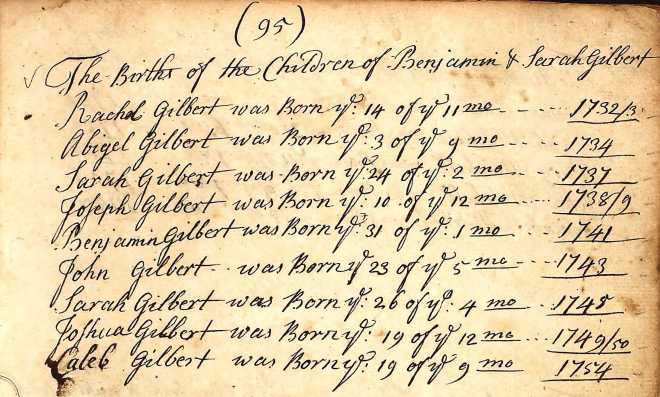 (95)
The Births of the Children of Benjamin & Sarah Gilbert
Rachel Gilbert was Born ye: 14 of ye 11 mo ---- 1732/3
Abigel Gilbert was Born ye: 3 of ye 9 mo ---- 1734
Sarah Gilbert was Born ye: 24 of ye: 2 mo --- 1737
Joseph Gilbert was Born ye: 10 of ye 12 mo --- 1738/9
Benjamin Gilbert was Born ye: 31 of ye: 1 mo --- 1741
John Gilbert -- was Born ye 23 of ye 5 mo --- 1743
Sarah Gilbert was Born ye: 26 of ye: 4 mo -- 1745
Joshua Gilbert was Born ye: 19 of ye 12 mo -- 1749/50
Caleb Gilbert was Born ye: 19 of ye 9 mo 1754